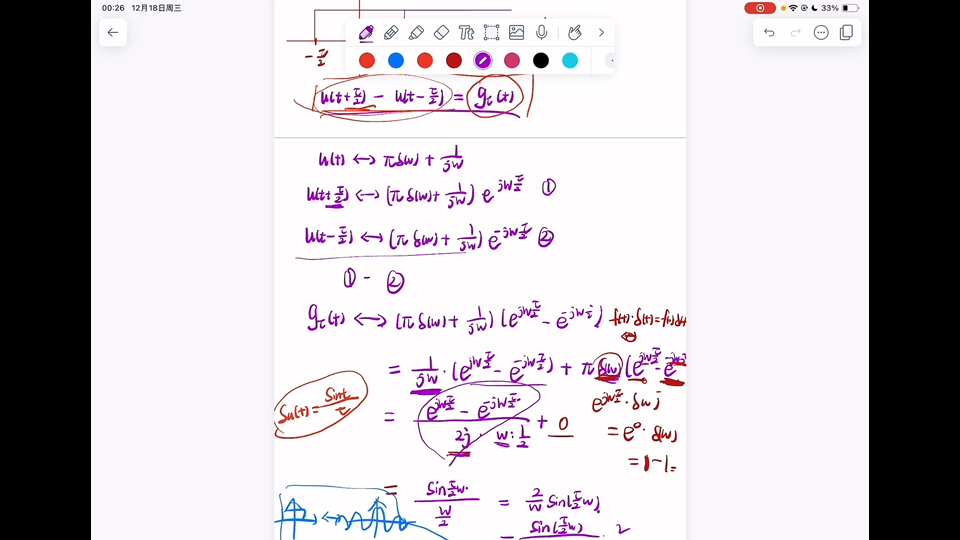 00:26 12月18日周三 33%
Tt
-τ/2
u(t+τ/2) - u(t-τ/2) = gτ(t)
u(t) ↔ πδ(w) + 1/jw
u(t+τ/2) ↔ (πδ(w) + 1/jw) e^{jwτ/2} ①
u(t-τ/2) ↔ (πδ(w) + 1/jw) e^{-jwτ/2} ②
① - ②
gτ(t) ↔ (πδ(w) + 1/jw) (e^{jwτ/2} - e^{-jwτ/2}) f(t)·δ(t)=f(0)δ(t)
= 1/jw · (e^{jwτ/2} - e^{-jwτ/2}) + πδ(w) (e^{jwτ/2} - e^{-jw
e^{jwτ/2}·δ(w)
Sa(t) = Sint/t
= (e^{jwτ/2} - e^{-jwτ/2}) / (2j · w · 1/2) + 0
= e^0 · δ(w)
= 1-1=
= Sin τ/2 w / (w/2) = 2/w Sin(τ/2 w)
= Sin(τ/2 w) 2